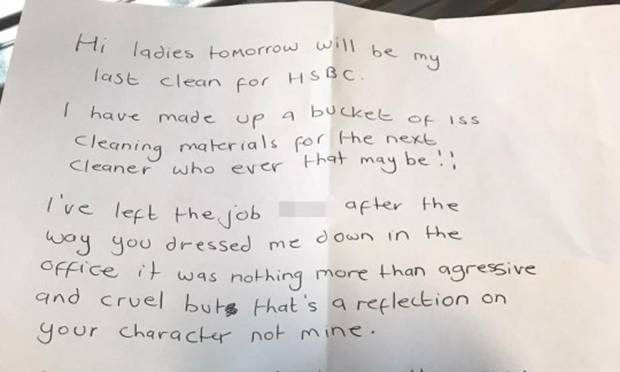 Hi ladies tomorrow will be my
last clean for HSBC.
I have made up a bucket of iss
cleaning materials for the next
cleaner who ever that may be!!
I've left the job after the
way you dressed me down in the
office it was nothing more than agressive
and cruel but that's a reflection on
your character not mine.